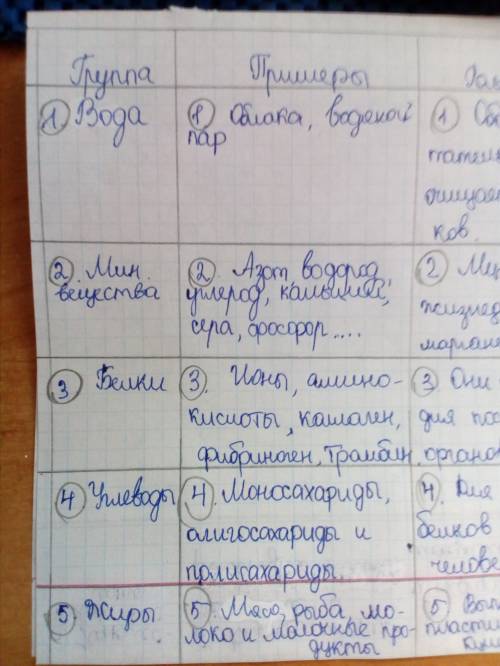 Группа Примеры
1 Вода 1 Облака, воденой
пар 1
очищае
ков.
2. Мин. 2. Азот, водород,
вещества углерод, кальций,
сера, фосфор....
2
жизнед
марган
3 Белки 3. Ионы, амино-
кислоты, кашаген,
фибриноген, трамбин.
3 Они
для пос
органо
4 Углеводы 4. Моносахариды,
алигосахариды и
полисахариды.
4. Для
белков
челове
5 Жиры 5. Мясо, рыба, мо-
локо и молочные про-
дукты
5 Вып
пласти